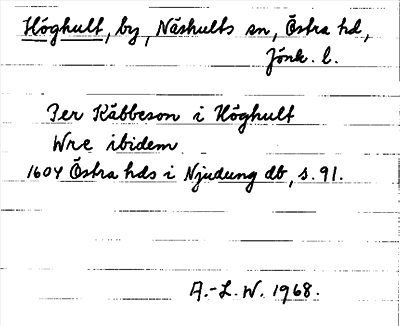 Höghult, by, Näshults sn, Östra hd,
Jönk. l.
Per Käbbeson i Höghult
Wre ibidem
1604 Östra hds i Njudung db, s. 91.
A.-L. W. 1968.